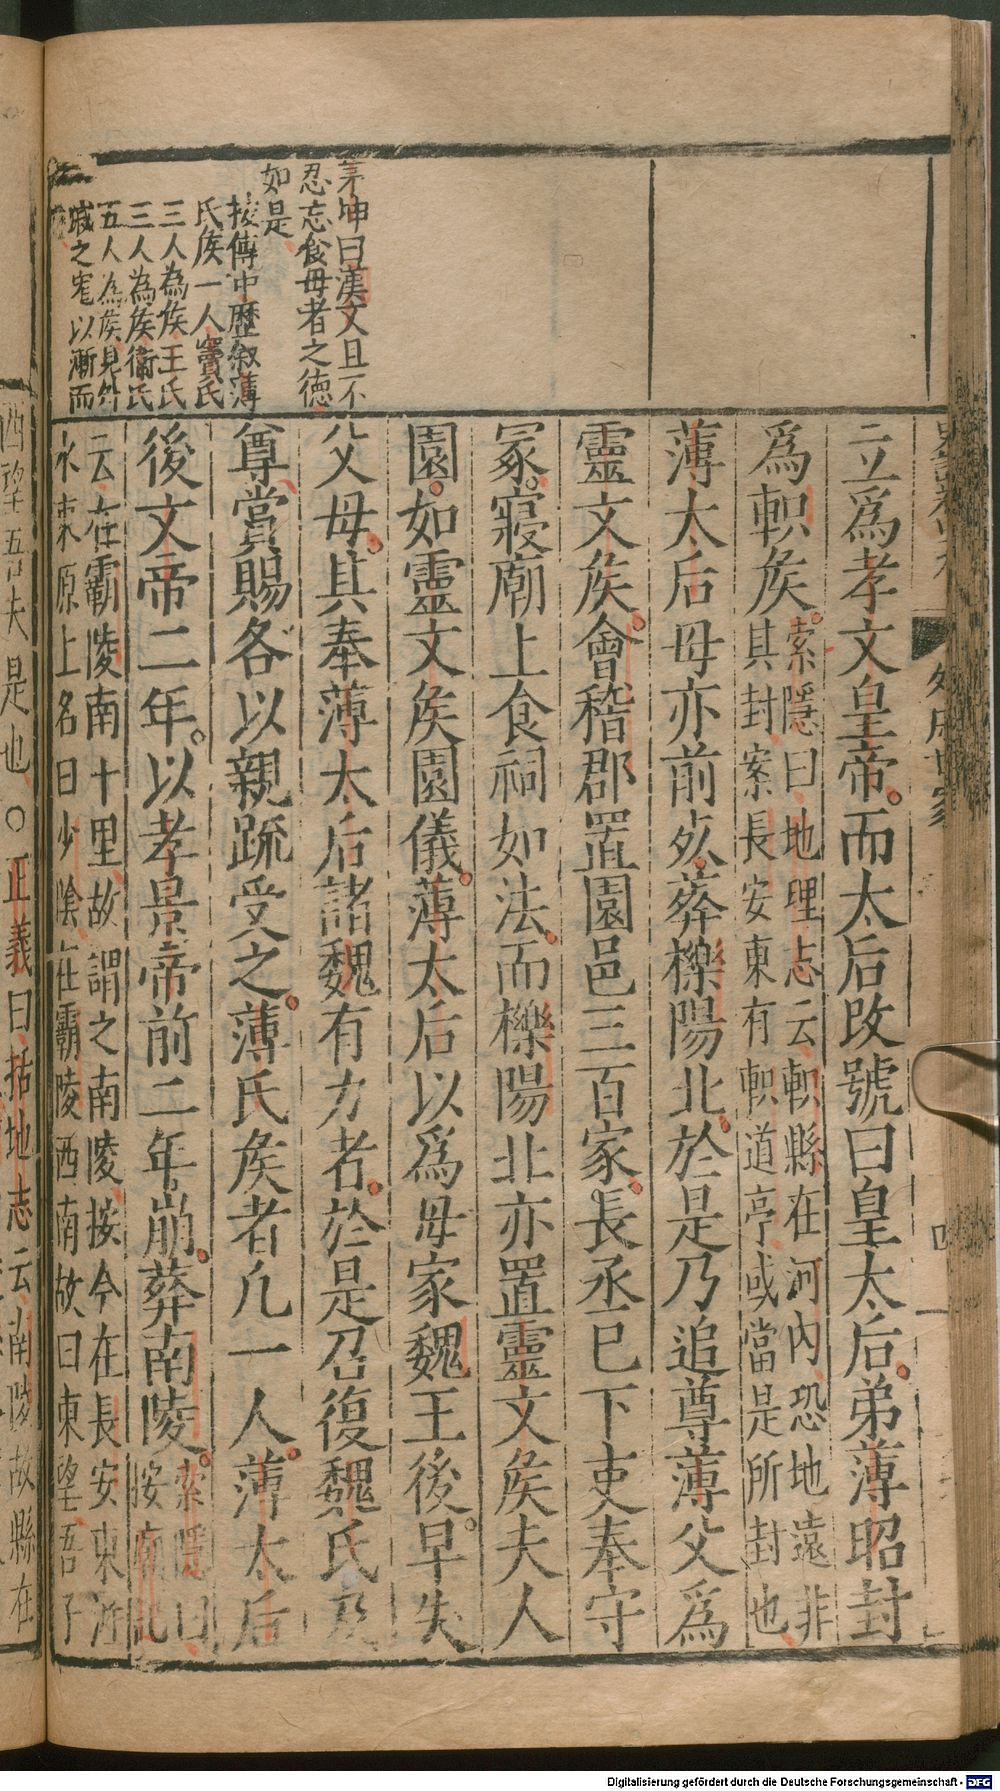 茅坤曰漢文且不
忍忘食母者之德
如是
按傳中歷敘薄
氏侯一人竇氏
三人為侯王氏
三人為侯衛氏
五人為侯見外
戚之寵以漸而
立爲孝文皇帝而太后改號曰皇太后弟薄昭封
爲軹侯
索隱曰地理志云軹縣在河內恐地遠非
其封案長安東有軹道亭或當是所封也
薄太后母亦前死葬櫟陽北於是乃追尊薄父爲
靈文侯會稽郡置園邑三百家長丞已下吏奉守
冢寢廟上食祠如法而櫟陽北亦置靈文侯夫人
園如靈文侯園儀薄太后以爲母家魏王後早失
父母其奉薄太后諸魏有力者於是召復魏氏及
尊賞賜各以親疏受之薄氏侯者凡一人薄太后
後文帝二年以孝景帝前二年崩葬南陵
索隱曰
按廟記
云在霸陵南十里故謂之南陵按今在長安東滻
水東原上名曰少陰在霸陵西南故曰東望吾子
西望吾夫是也○正義曰括地志云南陵故縣在
Digitalisierung gefördert durch die Deutsche Forschungsgemeinschaft - DFG